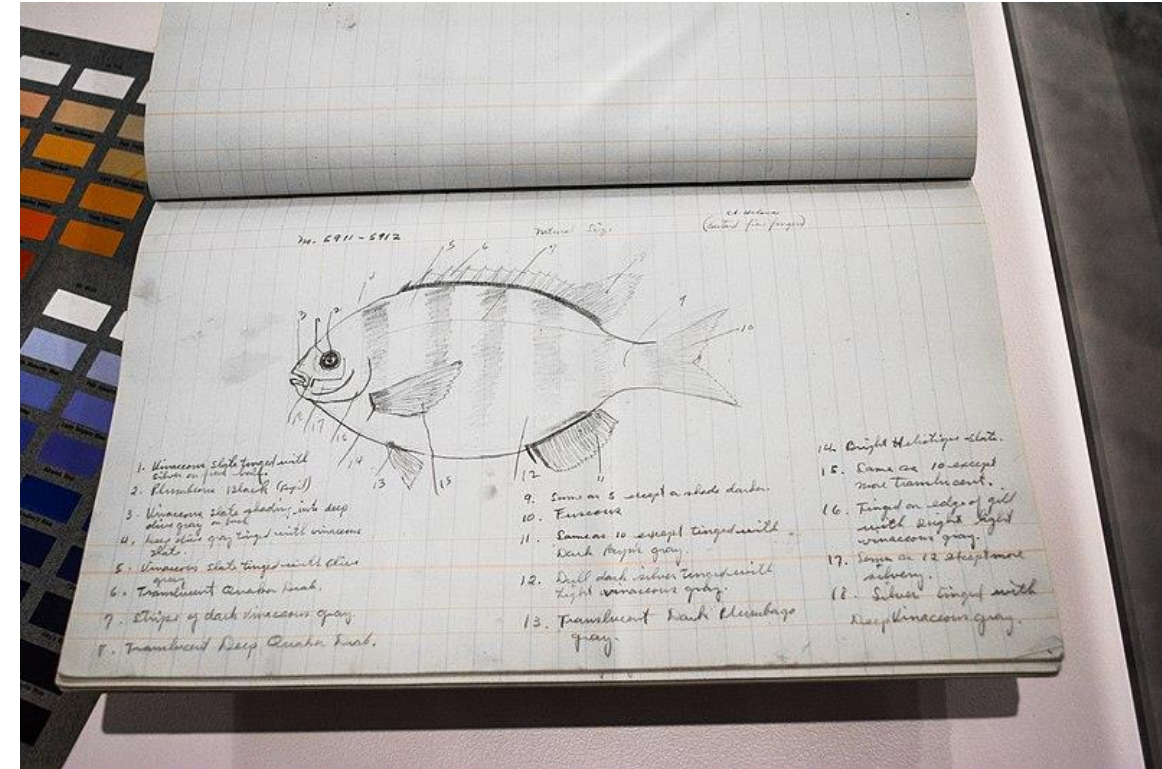 No. 5911-5912
Natural Size
St. Helena
1. Vinaceous slate tinged with
silver on
2. Plumbeous Black (Pupil)
3. Vinaceous Slate shading into deep
olive gray on back
4. Deep olive gray tinged with vinaceous
slate.
5. Vinaceous slate tinged with Olive
gray
6. Translucent Quaker Drab.
7. Stripe of dark vinaceous gray.
8. Translucent Deep Quaker Drab.
9. Same as 5 except a shade darker.
10. Fuscous
11. Same as 10 except tinged with
Dark gray.
12. Dull dark silver tinged with
Light vinaceous gray.
13. Translucent Dark Plumbago
gray.
14. Bright Heliotrope Slate.
15. Same as 10 except
more translucent.
16. Tinged on edge of gill
with bright light
vinaceous gray.
17. Same as 12 except more
silvery.
18. Silver tinged with
Deep Vinaceous gray.